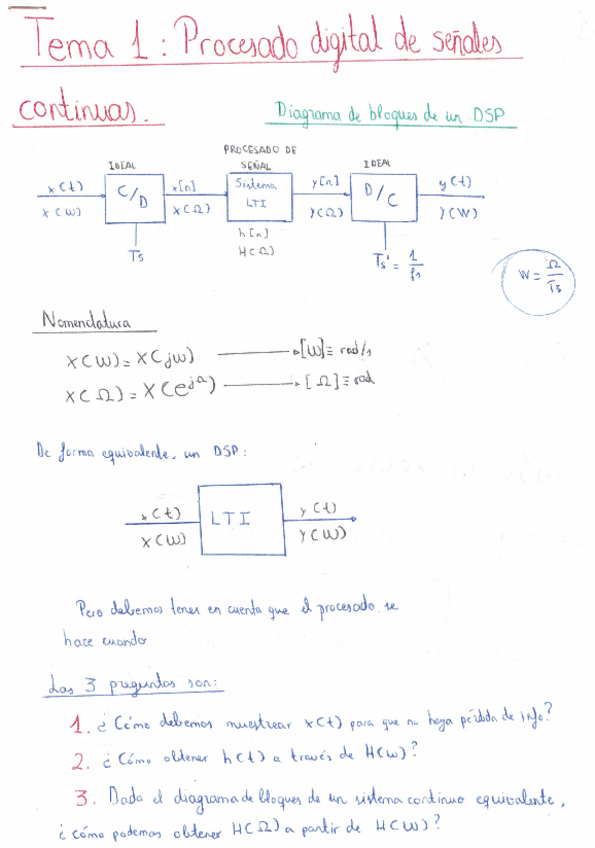 Tema 1: Procesado digital de señales
continuas.
Diagrama de bloques de un DSP
PROCESADO DE
SEÑAL
IDEAL
IDEAL
x(t)
X(W)
C/D
Ts
x[n]
X(Ω)
Sistema
LTI
h[n]
H(Ω)
y[n]
Y(Ω)
D/C
Ts' = 1/fs
y(t)
Y(W)
W = Ω/Ts
Nomenclatura
X(W) = X(jW) → [W] ≡ rad/s
X(Ω) = X(e^jΩ) → [Ω] ≡ rad
De forma equivalente, un DSP:
x(t)
X(W)
LTI
y(t)
Y(W)
Pero debemos tener en cuenta que el procesado se
hace cuando
Las 3 preguntas son:
1. ¿Cómo debemos muestrear x(t) para que no haya pérdida de info?
2. ¿Cómo obtener h(t) a través de H(w)?
3. Dada el diagrama de bloques de un sistema continuo equivalente,
¿cómo podemos obtener H(Ω) a partir de H(W)?